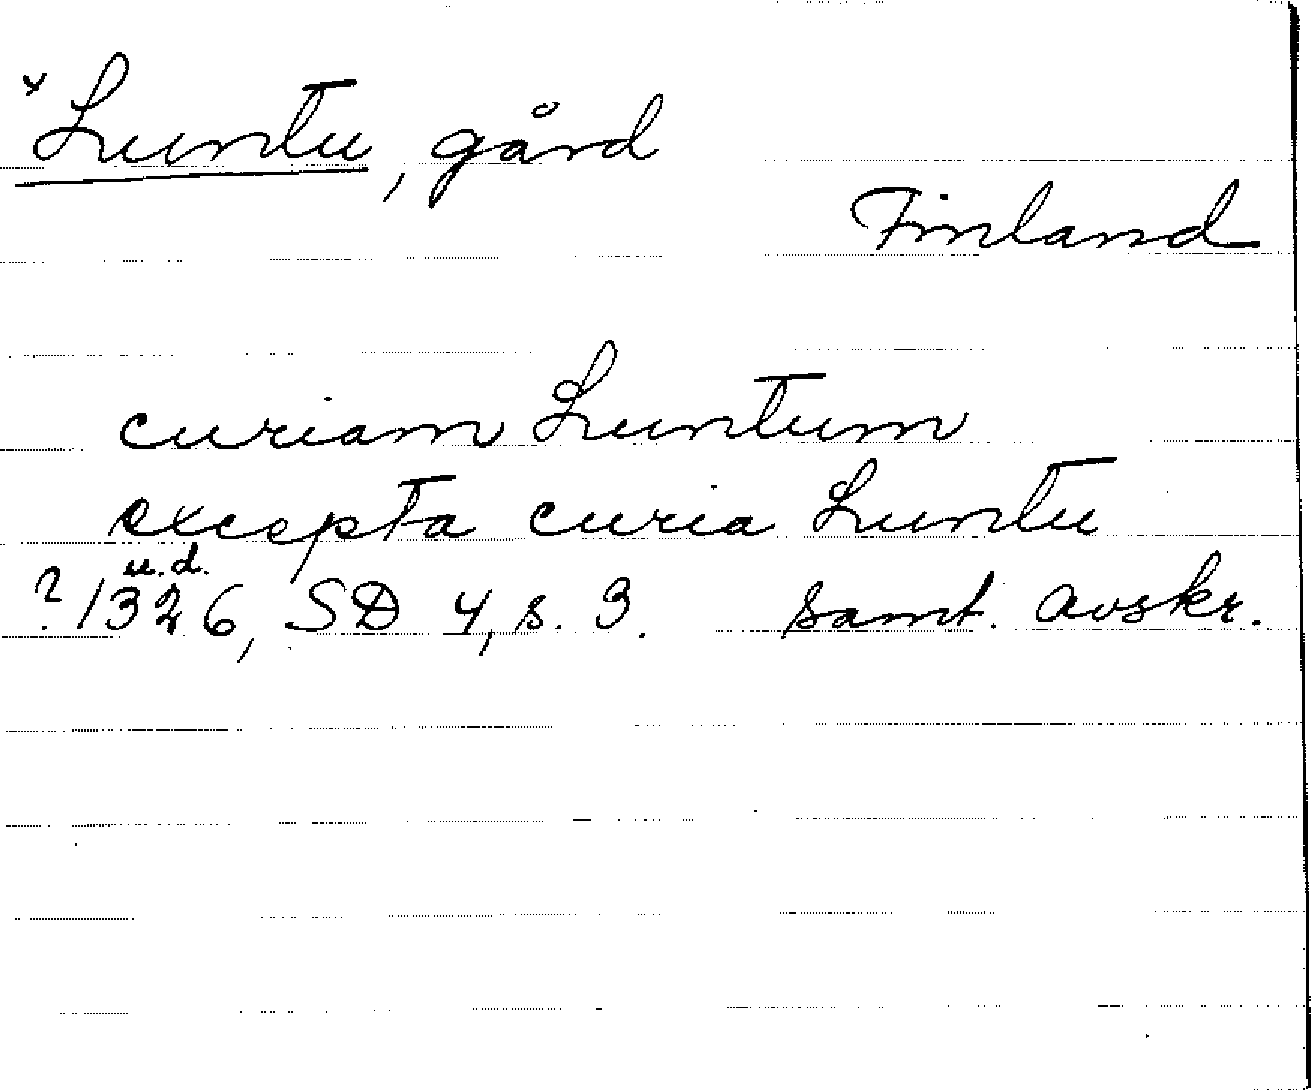 *Luntu, gård
Finland
curiam Luntum
excepta curia Luntu
u.d.
? 1326, SD 4, s. 3. samt. avskr.